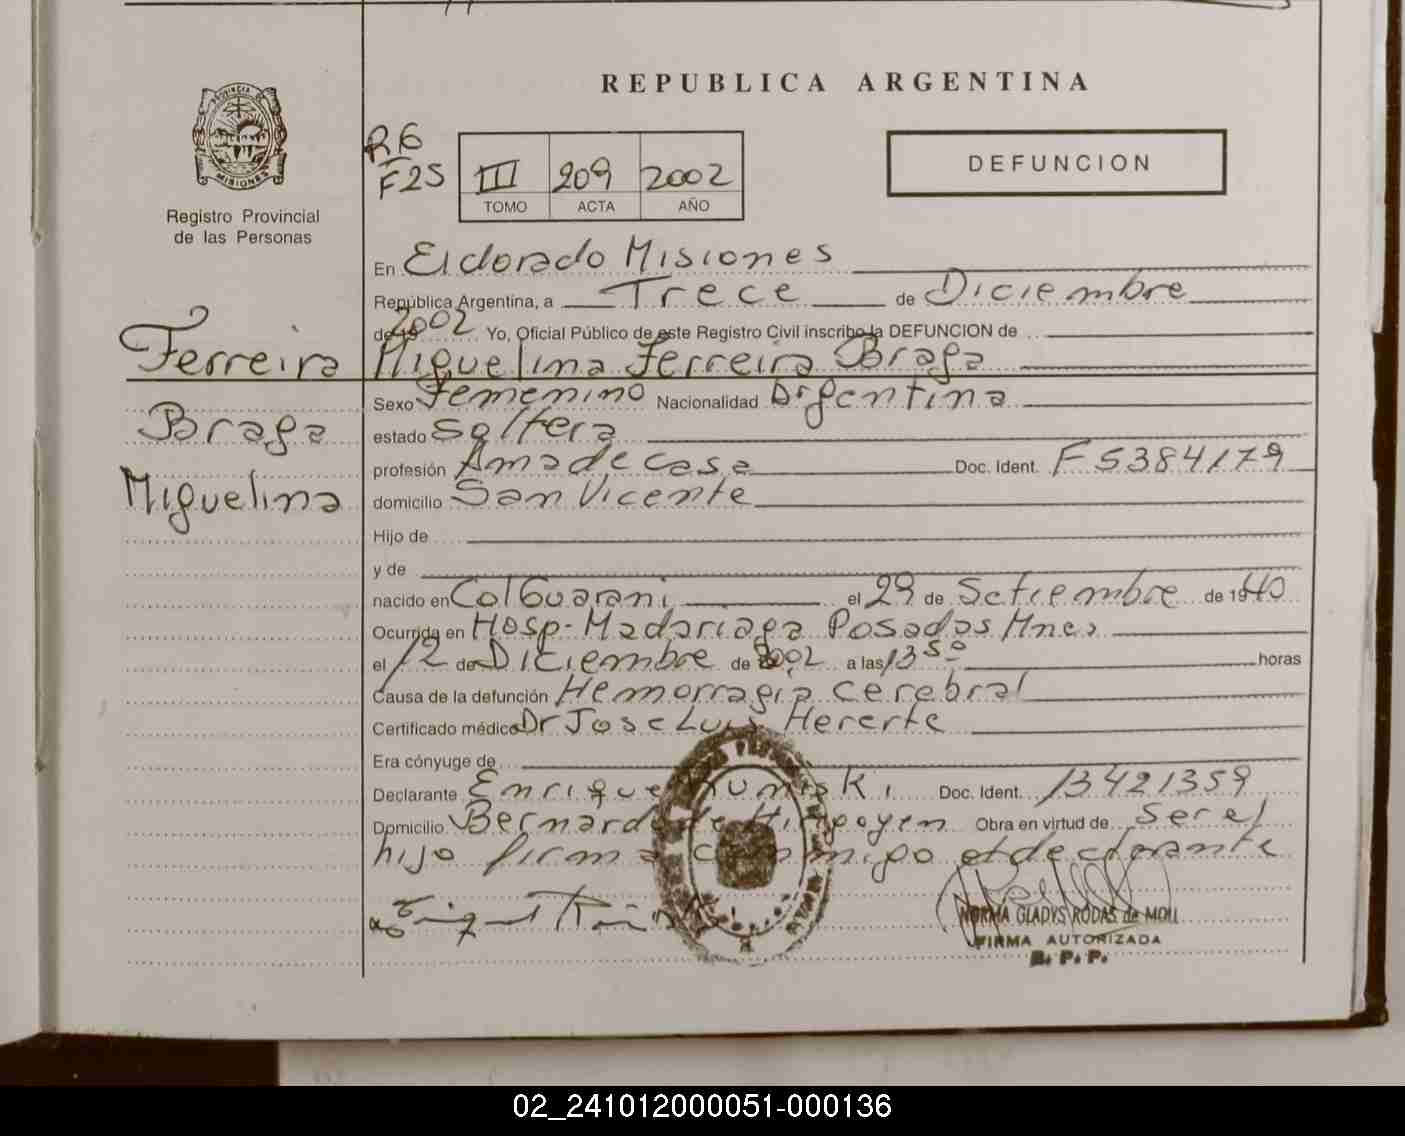 REPUBLICA ARGENTINA
PROVINCIA DE
MISIONES
Registro Provincial
de las Personas
R6
F25
III 209 2002
TOMO ACTA AÑO
DEFUNCION
En Eldorado Misiones
República Argentina, a Trece de Diciembre
de 19 2002 Yo, Oficial Público de este Registro Civil inscribo la DEFUNCION de
Ferreira Miguelina Ferreira Braga
Sexo Femenino Nacionalidad Argentina
Braga estado Soltera
profesión Ama de Casa Doc. Ident. F5384179
Miguelina domicilio San Vicente
Hijo de
y de
nacido en Col Guarani el 29 de Setiembre de 1940
Ocurrida en Hosp-Madariaga Posadas Mnes
el 12 de Diciembre de 2002 a las 13 50 horas
Causa de la defunción Hemorragia cerebral
Certificado médico Dr Jose Luis Hererte
Era cónyuge de
Declarante Enrique Doc. Ident. 13421359
Domicilio Bernardo de Hirigoyen Obra en virtud de Ser el
hijo firma conmigo el declarante
NORMA GLADYS RODAS de MOLL
FIRMA AUTORIZADA
R. P. P.
02_241012000051-000136